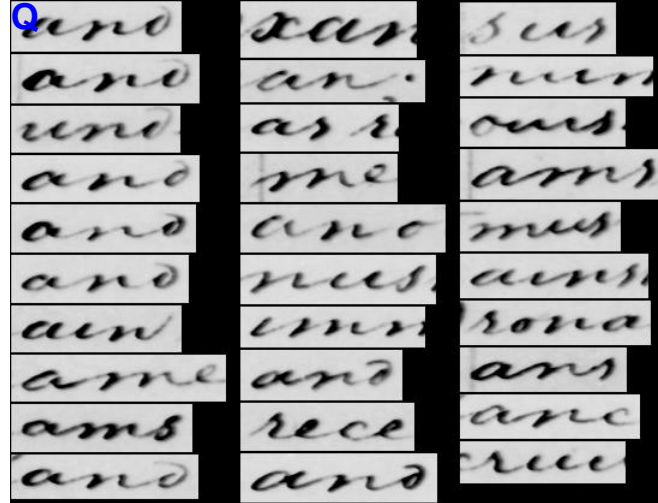 Q
and
and
und
and
and
and
ain
ame
ams
and
xan
an
as r
me
ano
nus
imm
and
rece
and
sus
num
ours
ams
mus
ains
rona
ans
anc